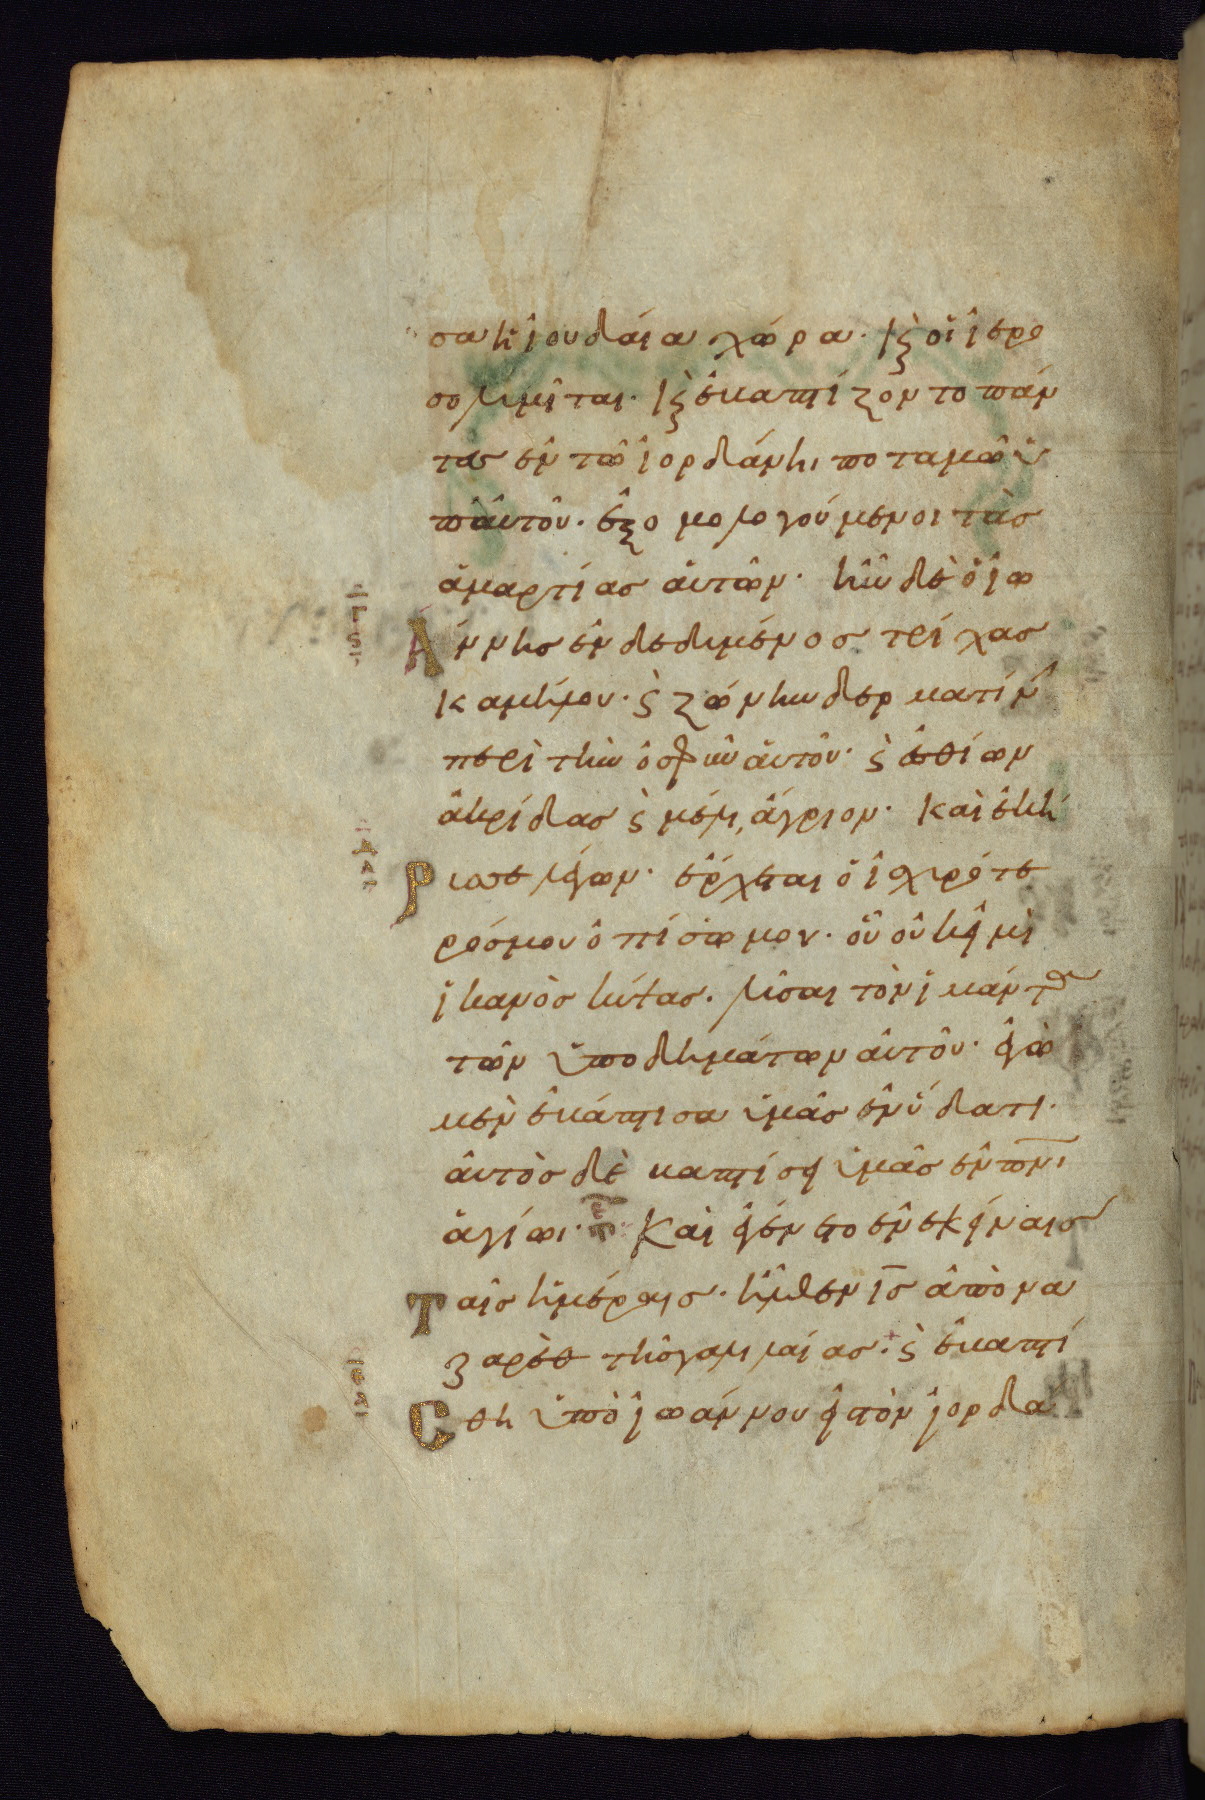 σα ἡ ἰουδαία χώρα· κ̀ οἱ ἱερο
σολυμῖται· κ̀ ἐβαπτίζοντο πάν
τες ἐν τῶ ἰορδάνηι ποταμῶ ὑ
π' ἀυτοῦ· ἐξομολογούμενοι τὰσ
ἁμαρτίας ἀυτῶν· ἦν δὲ ὁ ἰω
Άννης ἐνδεδυμένοσ τρίχασ
καμήλου· ϛ̀ ζώνην δερματίν
περὶ τὴν ὀσφῦν ἀυτοῦ· ϛ̀ ἐσθίων
ἀκρίδας ϛ̀ μέλι ἄγριον· Καὶ ἐκή
Ρυσσε λέγων· ἔρχεται ὁ ἰσχυρότε
ρόσ μου ὀπίσω μου· οὗ οὐκ εἰμὶ
ἱκανὸσ κύψας λῦσαι τὸν ἱμάντα
τῶν ὑποδημάτων ἀυτοῦ· ἐγὼ
μὲν ἐβάπτισα ὑμᾶσ ἐν ὕδατι·
ἀυτὸσ δὲ βαπτίσει ὑμᾶσ ἐν πνι
ἁγίωι· Καὶ ἐγένετο ἐν ἐκείναισ
Ταῖσ ἡμέραισ· ἦλθεν ισ ἀπὸ να
ζαρὲθ τῆσ γαλιλαίασ· ϛ̀ ἐβαπτί
Σθη ὑπὸ ἰωάννου εἰσ τὸν ἰορδά